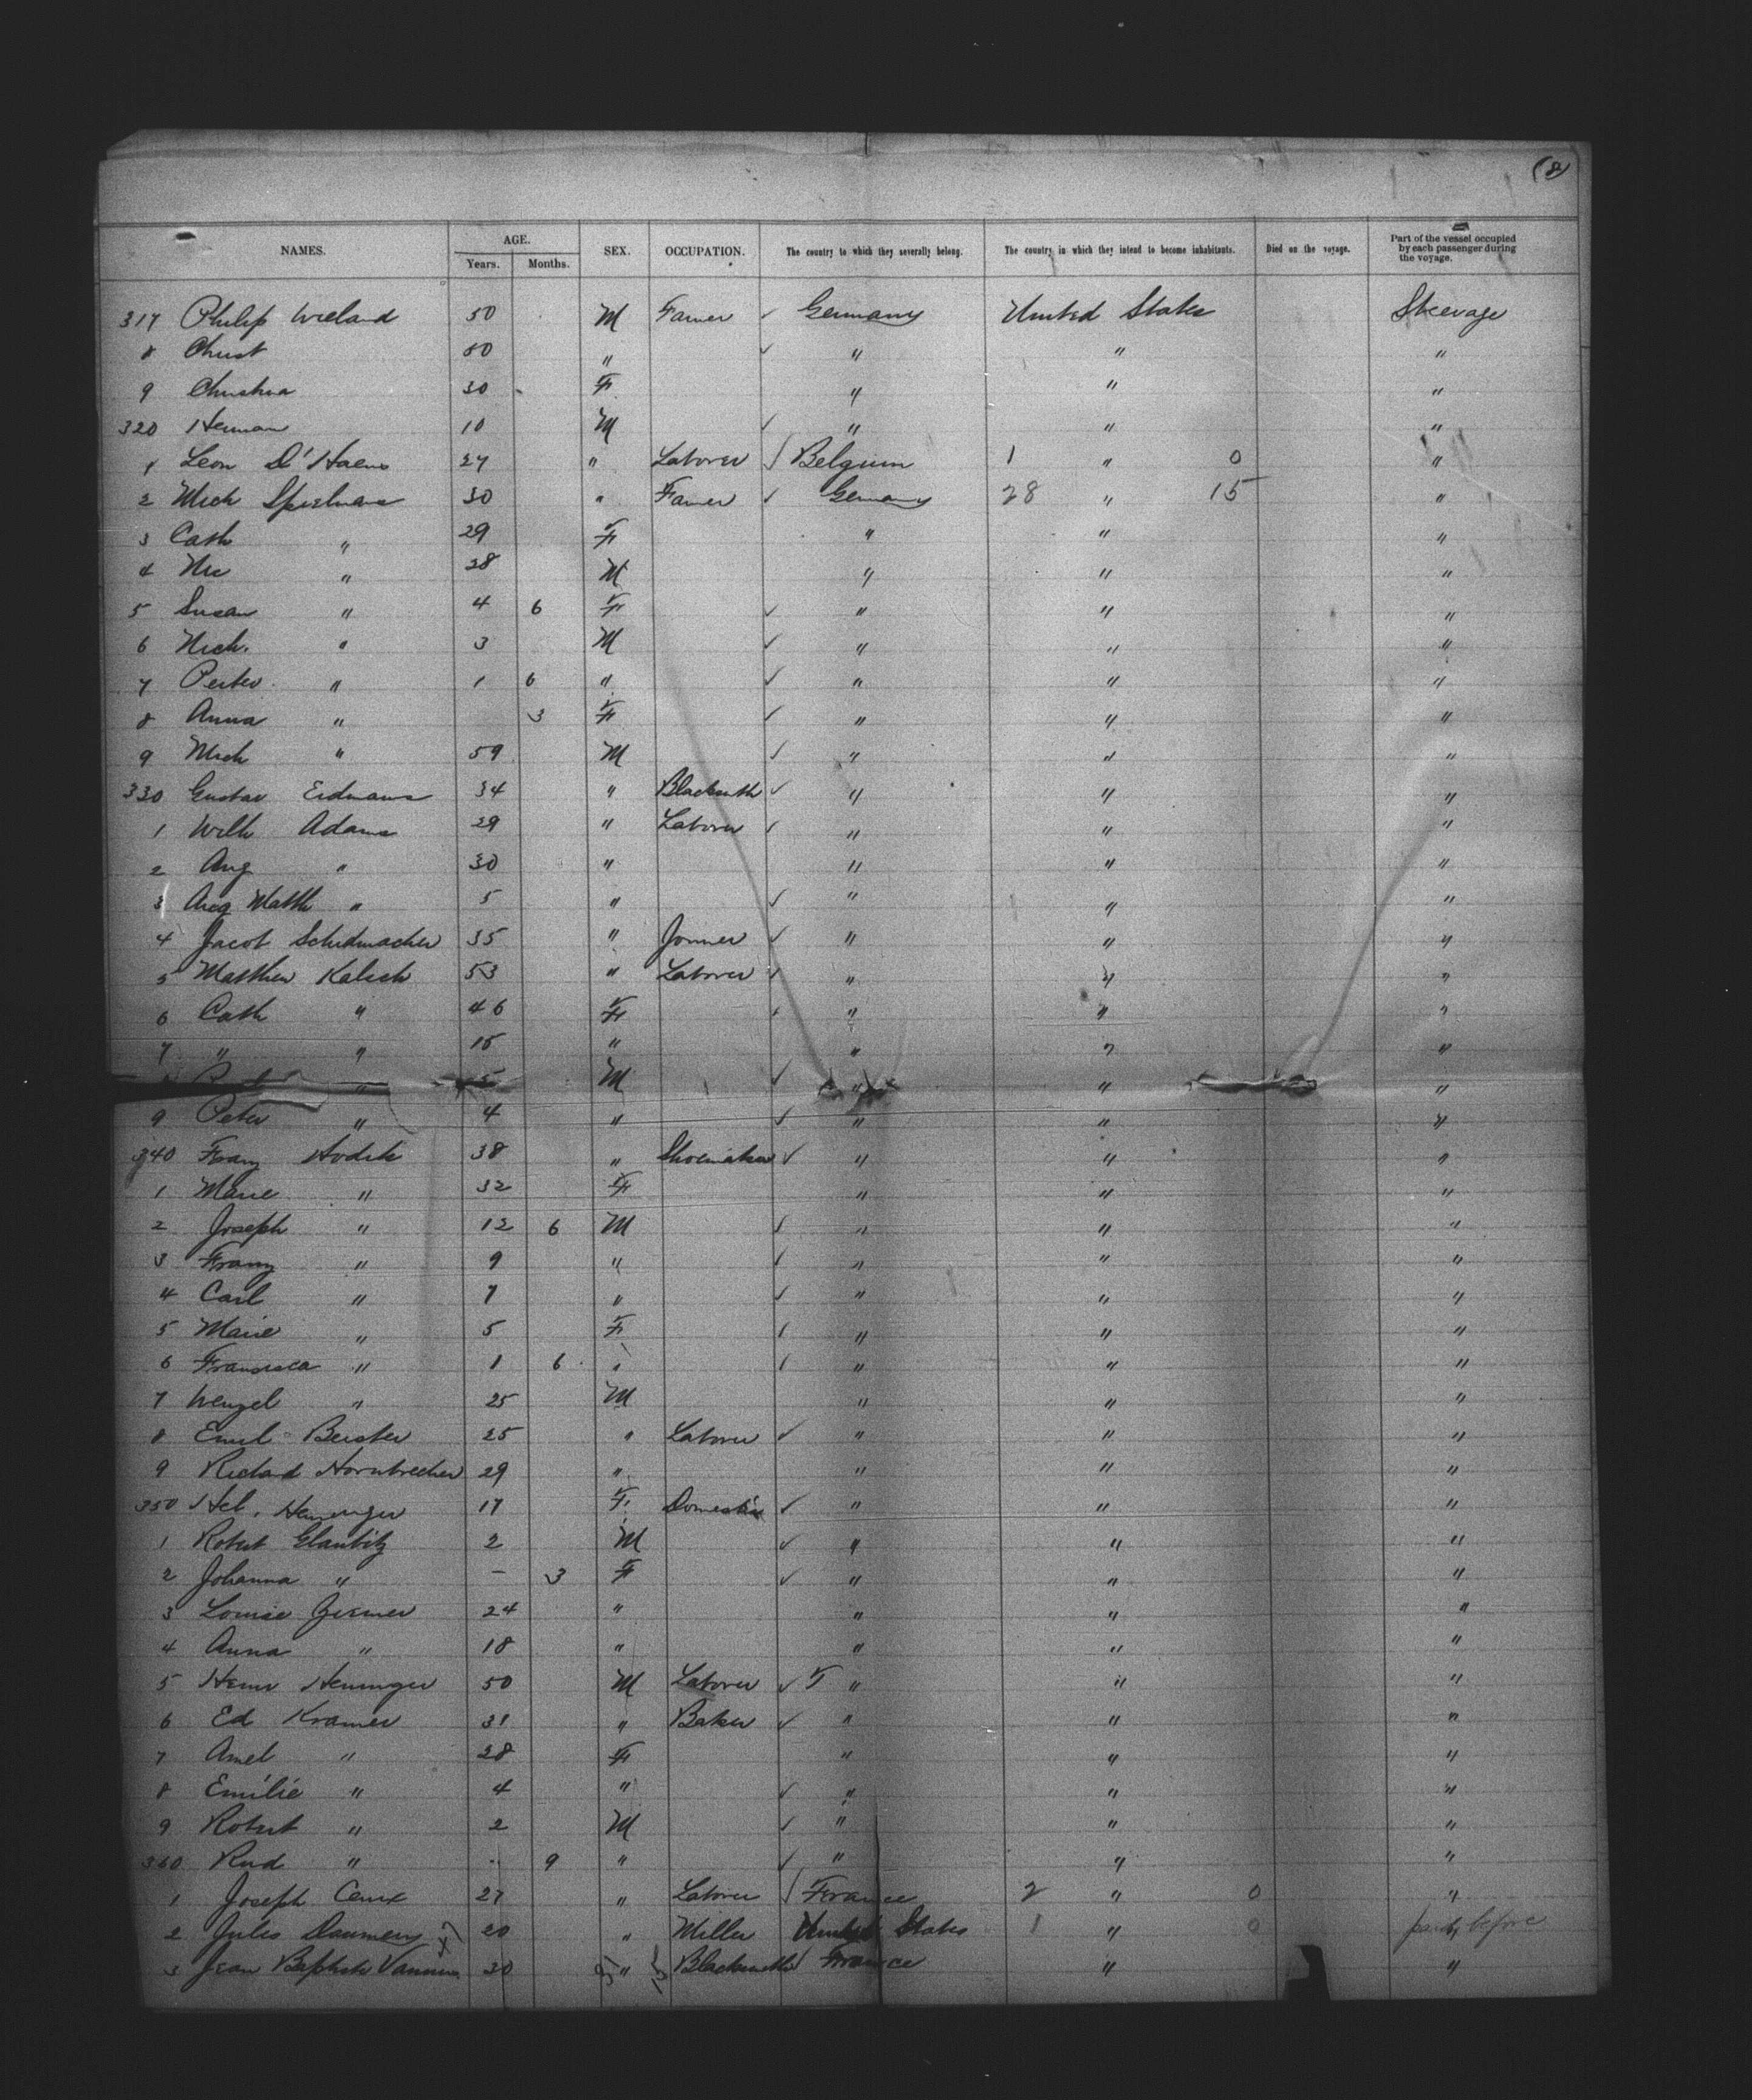 (8)
NAMES. AGE. Years. Months. SEX. OCCUPATION. The country to which they severally belong. The country in which they intend to become inhabitants. Died on the voyage. Part of the vessel occupied by each passenger during the voyage.
317 Philip Wieland 50 M Farmer ✓ Germany United States Steerage
8 Christ ✓ " " " "
9 Christina 30 F " " "
320 Herman 10 M ✓ " " "
1 Leon D'Haens 27 " Laborer Belgium 1 " 0 "
2 Mich Spielmann 30 " Farmer ✓ Germany 28 " 15 "
3 Cath " 29 F " " "
4 Nic " 28 M " " "
5 Susan " 4 6 F ✓ " " "
6 Nich. " 3 M ✓ " " "
7 Peter " 1 6 " ✓ " " "
8 Anna " 3 F ✓ " " "
9 Mich " 59 M ✓ " " "
330 Gustav Erdmann 34 " Blacksmith ✓ " " "
1 Wilh Adams 29 " Laborer ✓ " " "
2 Aug " 30 " " " "
3 Aug Matth " 5 " ✓ " " "
4 Jacob Schumacher 35 " Joiner ✓ " " "
5 Matthew Kalsch 53 " Laborer ✓ " " "
6 Cath " 46 F " " "
7 " " 15 " " " "
" 5 M ✓ " " "
9 Peter " 4 " ✓ " " "
340 Franz Hodek 38 " Shoemaker ✓ " " "
1 Marie " 32 F " " "
2 Joseph " 12 6 M ✓ " " "
3 Franz " 9 " ✓ " " "
4 Carl " 7 " ✓ " " "
5 Marie " 5 F ✓ " " "
6 Francisca " 1 6 " ✓ " " "
7 Wenzel " 25 M " " "
8 Emil 25 " Laborer ✓ " " "
9 Richard Hornbrecher 29 " " " "
350 Hel. 17 F Domestic ✓ " " "
1 Robert Glaubitz 2 M ✓ " " "
2 Johanna " - 3 F ✓ " " "
3 Louise 24 " " " "
4 Anna " 18 " " " "
5 Henr Henninger 50 M Laborer ✓ " " "
6 Ed Kramer 31 " Baker ✓ " " "
7 Amel " 28 F " " "
8 Emilie " 4 " ✓ " " "
9 Robert " 2 M ✓ " " "
360 Rud " 9 " ✓ " " "
1 Joseph 27 " Laborer France 2 " 0 "
2 Jules 20 " Miller United States 1 " 0 before
3 Jean Baptiste 30 " Blacksmith France " "